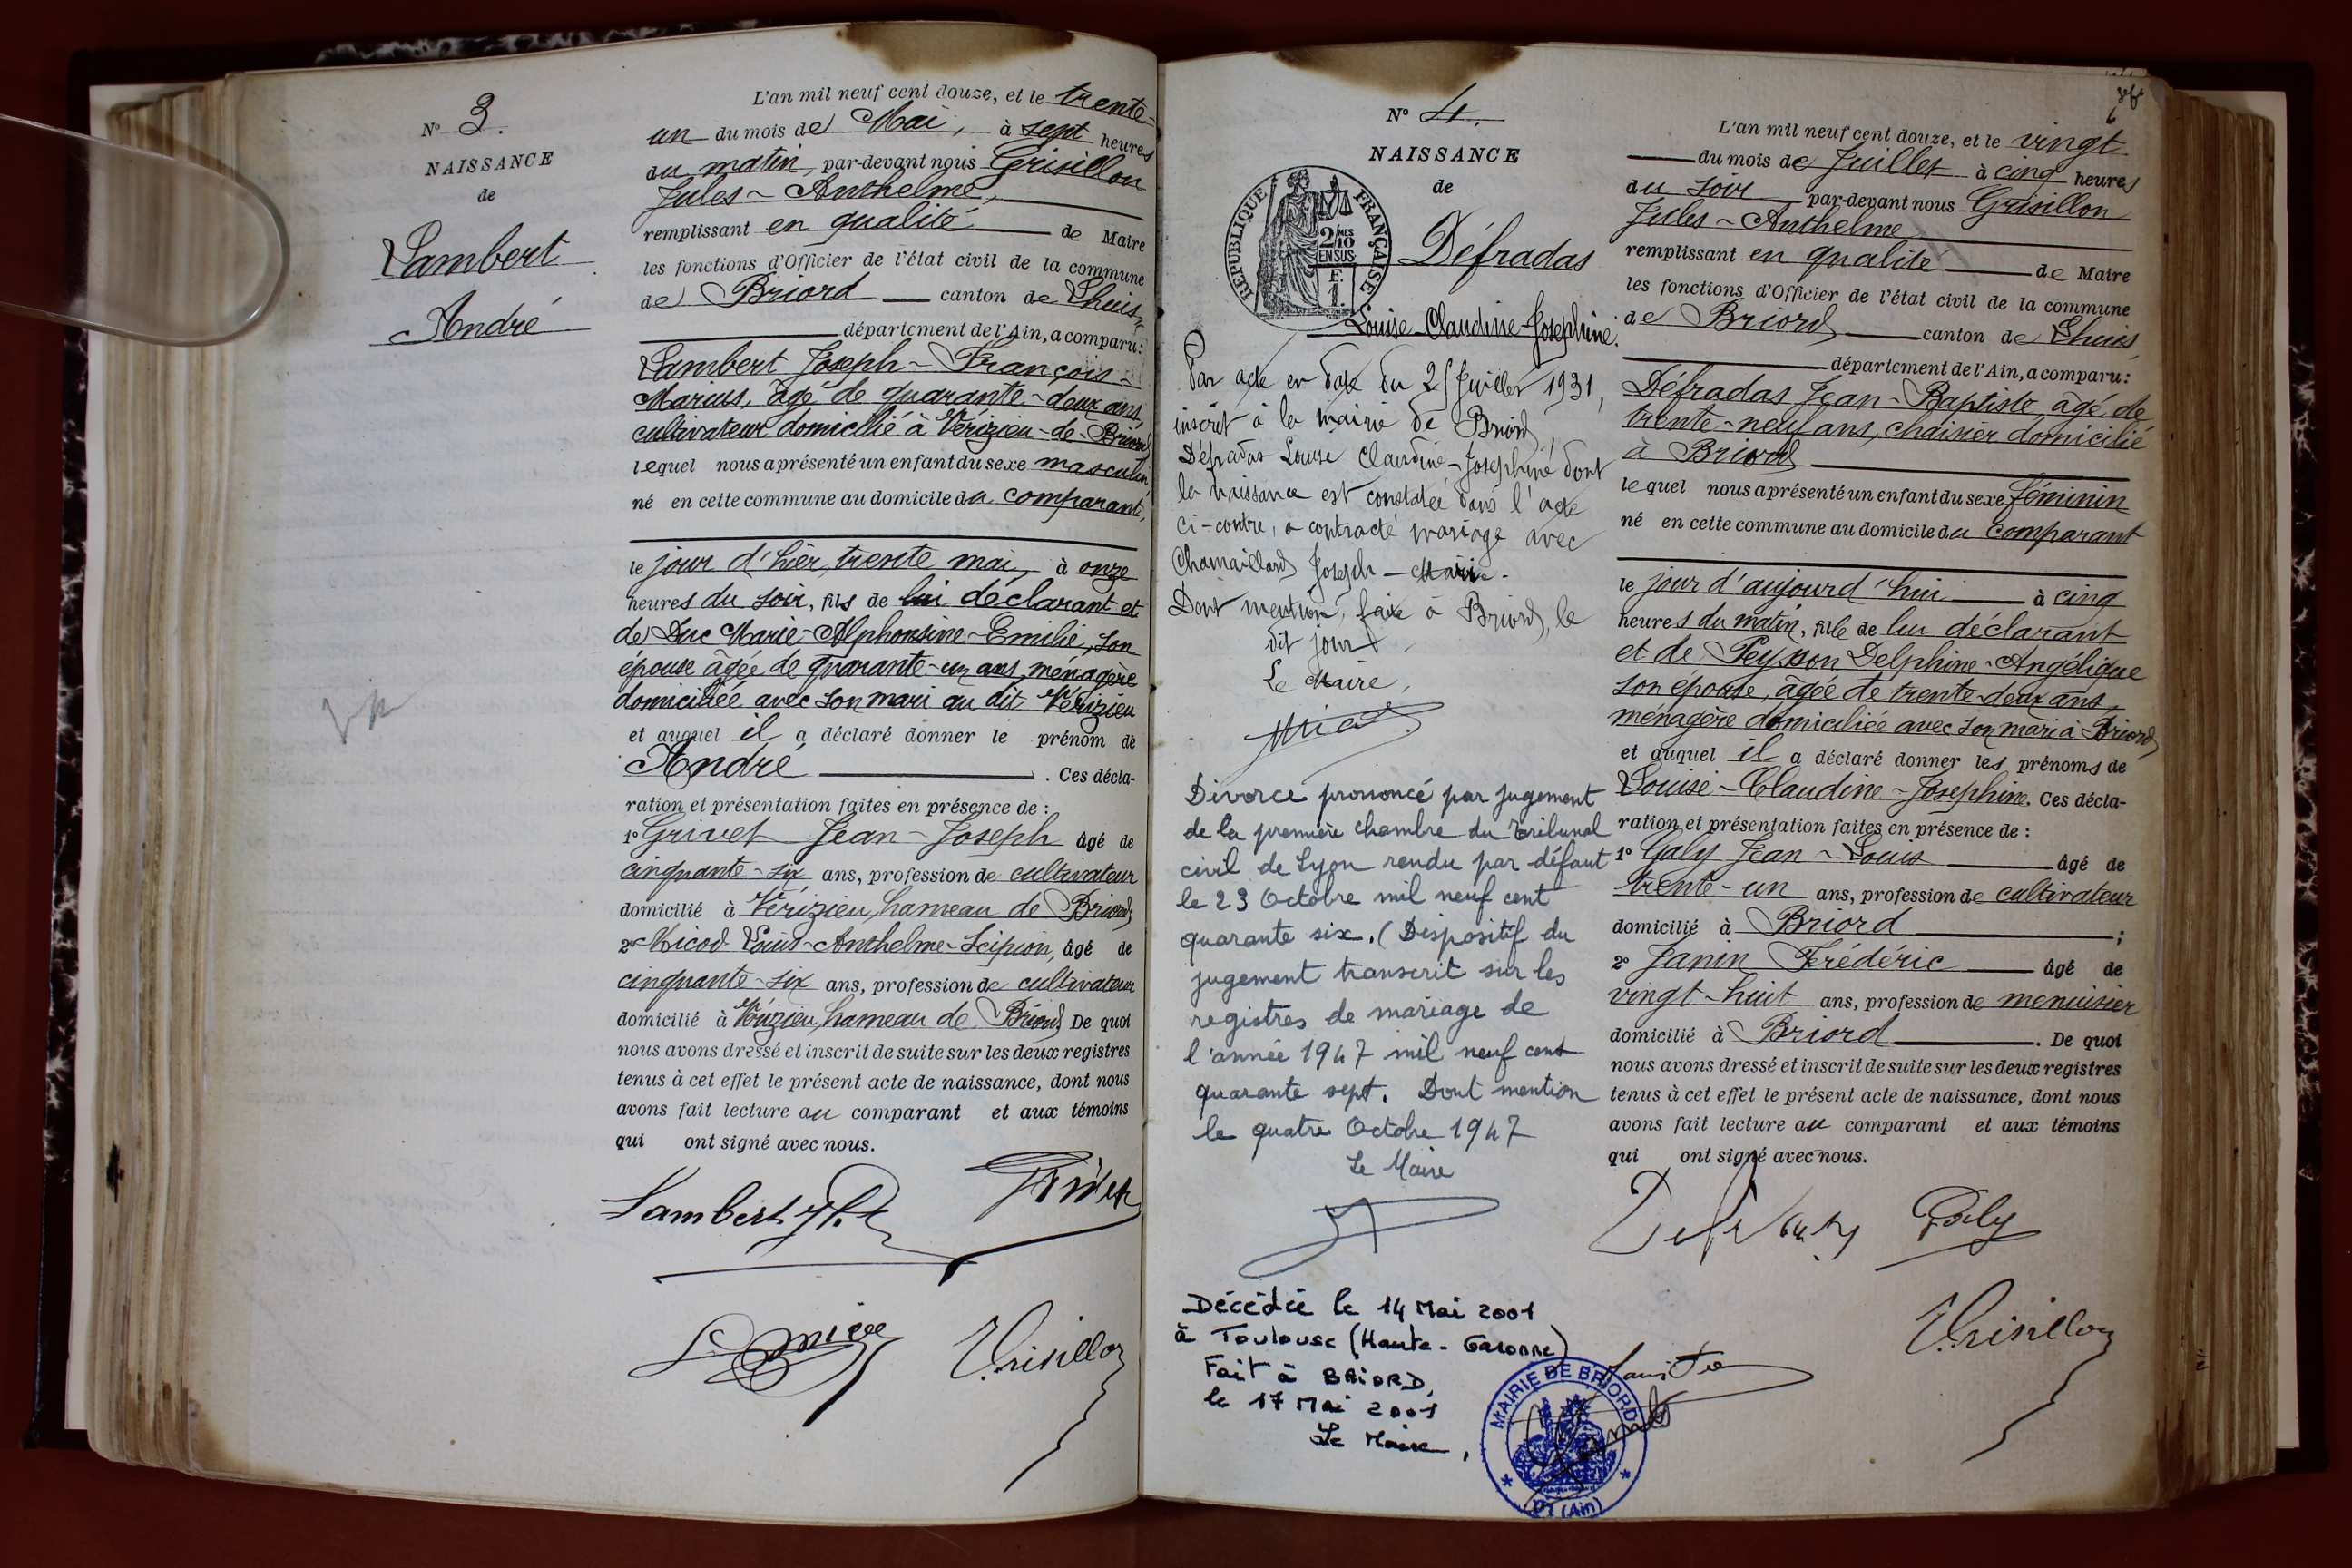 N° 3.
NAISSANCE
de
Lambert
André
L'an mil neuf cent douze, et le trente-
un du mois de Mai, à sept heures
du matin, par-devant nous Grisillon
Jules-Anthelme,
remplissant en qualité de Maire
les fonctions d'Officier de l'état civil de la commune
de Briord canton de Lhuis,
département de l'Ain, a comparu:
Lambert Joseph-François-
Marius, âgé de quarante-deux ans,
cultivateur domicilié à Vérizieu-de-Briord
lequel nous a présenté un enfant du sexe masculin
né en cette commune au domicile du comparant,
le jour d'hier, trente mai, à onze
heures du soir, fils de lui déclarant et
de Luc Marie-Alphonsine-Emilie, son
épouse âgée de quarante-un ans, ménagère
domiciliée avec son mari au dit Vérizieu
et auquel il a déclaré donner le prénom de
André . Ces décla-
ration et présentation faites en présence de :
1° Grivet Jean-Joseph âgé de
cinquante-six ans, profession de cultivateur
domicilié à Vérizieu, hameau de Briord;
2° Nicod Louis-Anthelme-Scipion, âgé de
cinquante-six ans, profession de cultivateur
domicilié à Vérizieu, hameau de Briord De quoi
nous avons dressé et inscrit de suite sur les deux registres
tenus à cet effet le présent acte de naissance, dont nous
avons fait lecture au comparant et aux témoins
qui ont signé avec nous.
Lambert
Grivet
Grisillon
N° 4.
NAISSANCE
de
RÉPUBLIQUE FRANÇAISE
2/10
EN SUS
F.
1.
Défradas
Louise-Claudine-Joséphine.
Par acte en date du 25 Juillet 1931,
inscrit à la mairie de Briord,
Défradas Louise Claudine-Joséphine dont
la naissance est constatée dans l'acte
ci-contre, a contracté mariage avec
Chamaillard Joseph-Marie.
Dont mention, faite à Briord, le
dit jour.
Le Maire,
Divorce prononcé par jugement
de la première chambre du Tribunal
civil de Lyon rendu par défaut
le 23 Octobre mil neuf cent
quarante six. (Dispositif du
jugement transcrit sur les
registres de mariage de
l'année 1947 mil neuf cent
quarante sept. Dont mention
le quatre Octobre 1947
Le Maire
Décédée le 14 Mai 2001
à Toulouse (Haute-Garonne)
Fait à BRIORD,
le 17 Mai 2001
Le Maire,
MAIRIE DE BRIORD
(Ain)
6
L'an mil neuf cent douze, et le vingt
du mois de Juillet à cinq heures
du soir par-devant nous Grisillon
Jules-Anthelme
remplissant en qualité de Maire
les fonctions d'Officier de l'état civil de la commune
de Briord canton de Lhuis,
département de l'Ain, a comparu:
Défradas Jean-Baptiste âgé de
trente-neuf ans, chaisier domicilié
à Briord
lequel nous a présenté un enfant du sexe féminin
né en cette commune au domicile du comparant
le jour d'aujourd'hui à cinq
heures du matin, fille de lui déclarant
et de Peysson Delphine-Angélique
son épouse, âgée de trente-deux ans,
ménagère domiciliée avec son mari à Briord
et auquel il a déclaré donner les prénoms de
Louise-Claudine-Joséphine. Ces décla-
ration et présentation faites en présence de :
1° Galy Jean-Louis âgé de
trente-un ans, profession de cultivateur
domicilié à Briord ;
2° Janin Frédéric âgé de
vingt-huit ans, profession de menuisier
domicilié à Briord . De quoi
nous avons dressé et inscrit de suite sur les deux registres
tenus à cet effet le présent acte de naissance, dont nous
avons fait lecture au comparant et aux témoins
qui ont signé avec nous.
Defradas Galy
Grisillon